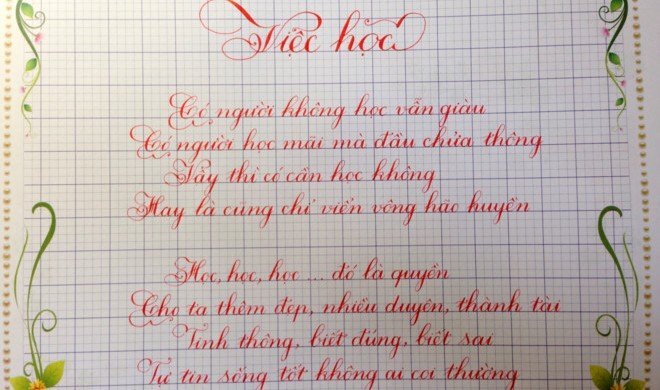 Việc học
Có người không học vẫn giàu
Có người học mãi mà đầu chửa thông
Vầy thì có cần học không
Hay là cũng chỉ viển vông hão huyền
Học, học, học ... đó là quyền
Cho ta thêm đẹp, nhiều duyên, thành tài
Tinh thông, biết đúng, biết sai
Tự tin sống tốt không ai coi thường